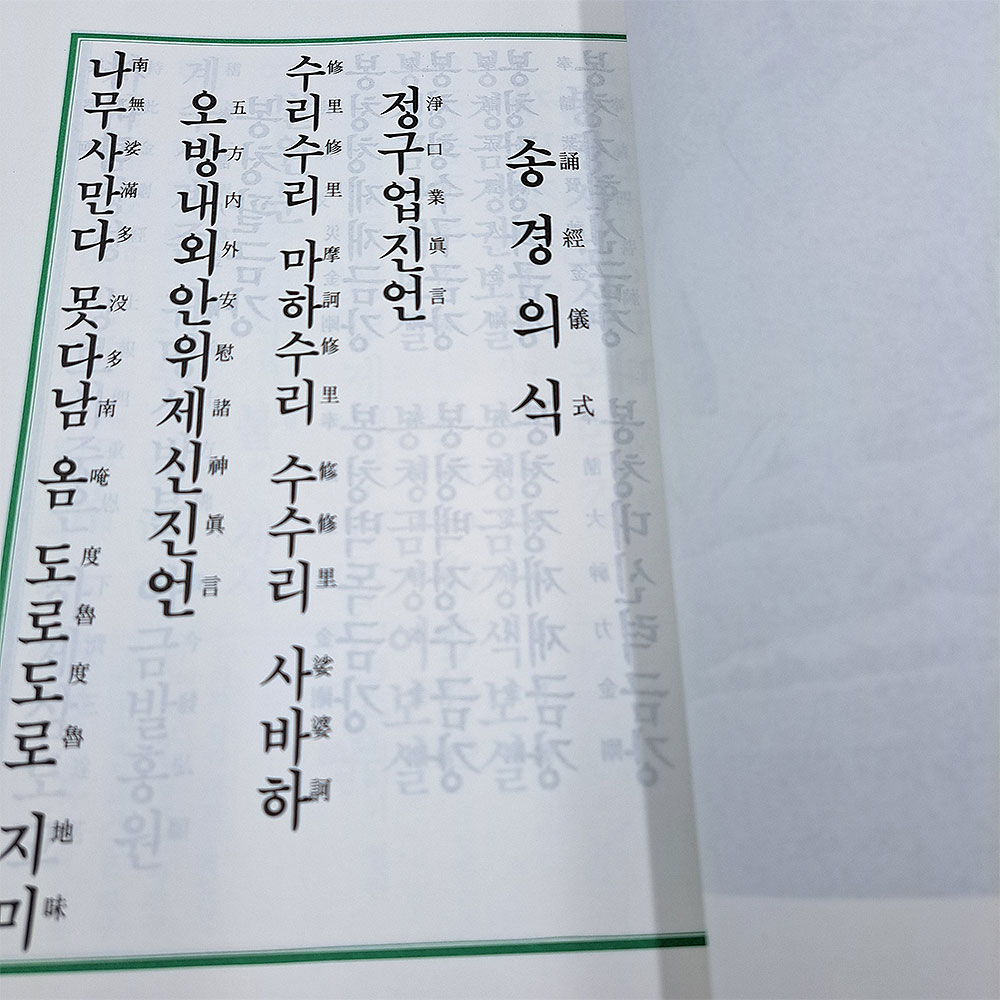 송경의식
誦經儀式
정구업진언
淨口業眞言
수리수리 마하수리 수수리 사바하
修里修里 摩訶修里 修修里 娑婆訶
오방내외안위제신진언
五方内外安慰諸神眞言
나무사만다 못다남 옴 도로도로 지미
南無娑滿多 没多南 唵 度魯度魯 地味